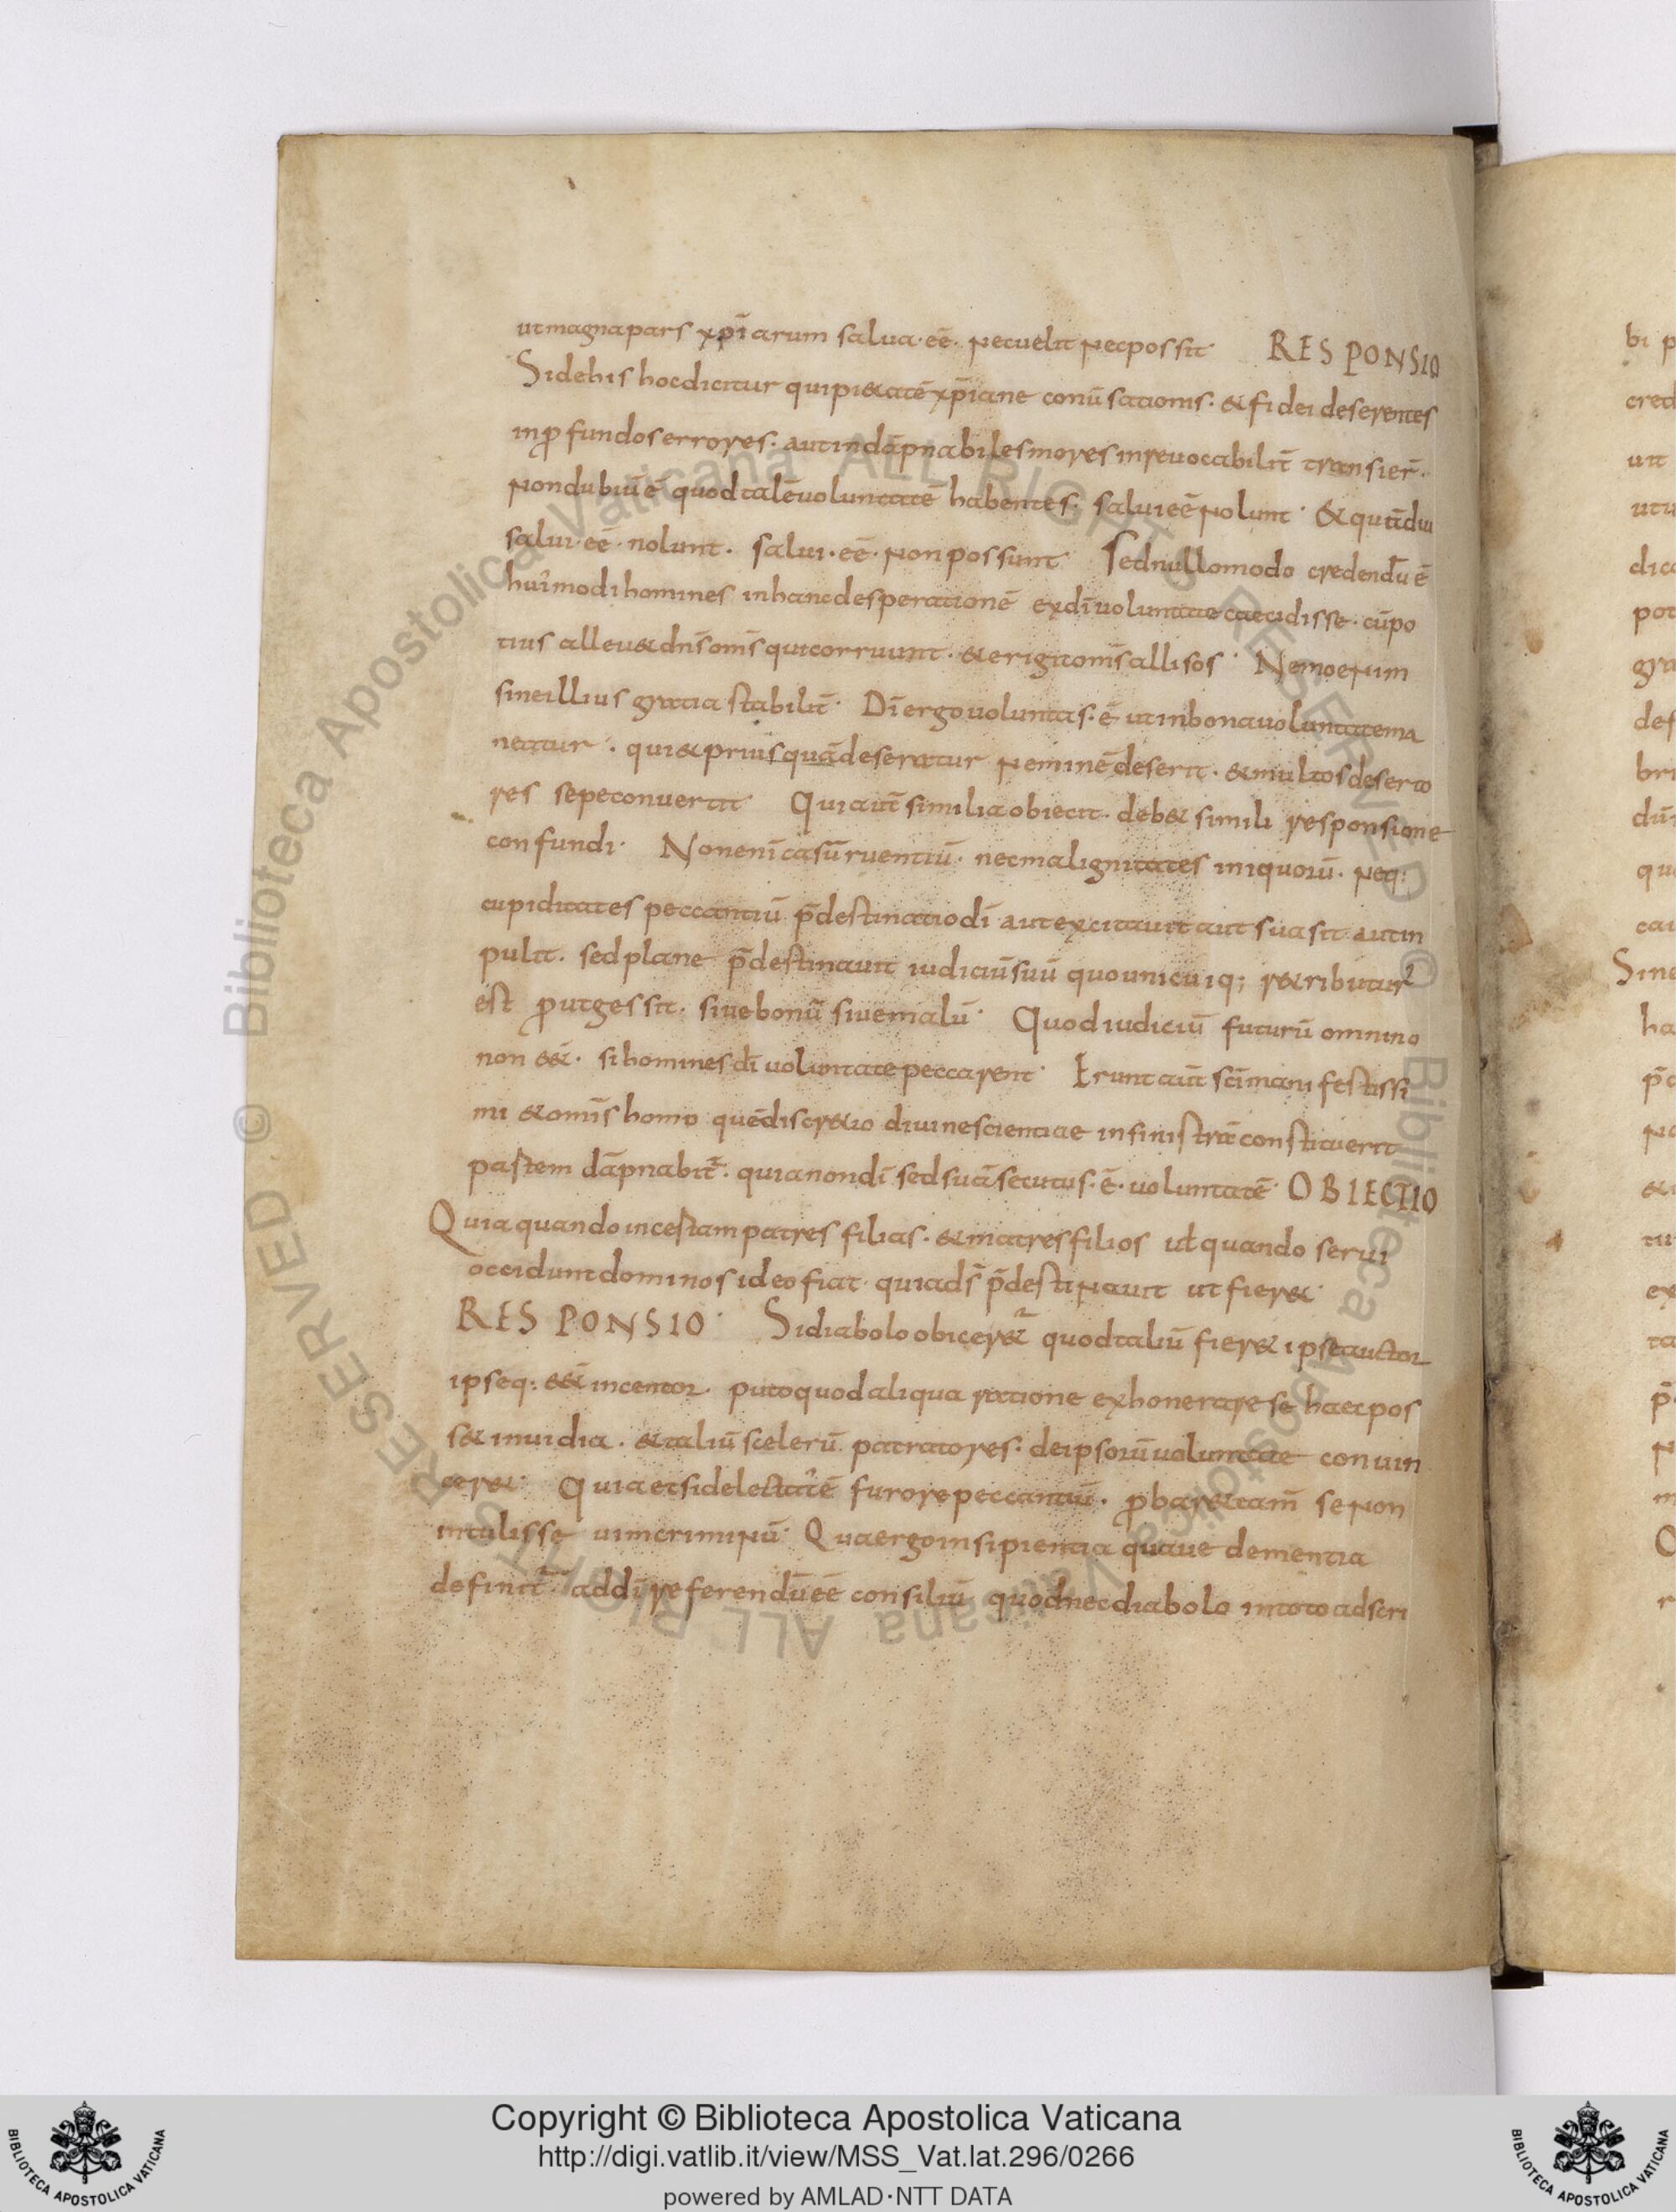 ut magna pars xp̄iarum salua·ēē· nec uelit nec possit· RESPONSIO
Si de his hoc dicitur qui pi&atē xp̄iane conūsationis· & fidei deserentes
in ꝓfundos errores· aut in dāpnabiles mores inreuocabilit̄ transier̄·
non dubiū ē quod talē uoluntatē habentes· salui ēē nolunt· & quādiu
salui·ēē·nolunt· salui·ēē·non possunt· Sed nullo modo credendū ē
hui᾽modi homines in hanc desperationē ex dī uoluntate caecidisse· cū po
tius alleu& dn̄s om̄s qui corruunt· & erigit om̄s allisos· Nemo enim
sine illius gratia stabilit̄· Dī ergo uoluntas·ē· ut in bona uoluntate ma
neatur· qui & priusquā deseratur neminē deserit· & multos deserto
res sepe conuertit· Qui aūt similia obiecit· deb& simili responsione
confundi· Non enī casū ruentiū· nec malignitates iniquorū· neq:
cupiditates peccantiū p̄destinatio dī aut excitauit aut suasit aut in
pulit· sed plane p̄destinauit iudiciū suū quo unicuiq; r&ributur᾽
est ꝓut gessit· siue bonū siue malū· Quod iudiciū futurū omnino
non ēē&· si homines dī uoluntate peccarent· Erunt aūt scī manifestissi
mi & om̄s homo quē discr&io diuine scientiae in sinistrā constituerit
pastem dāpnabit᾽· quia non dī sed suā secutus·ē·uoluntatē· OBIECTIO
Quia quando incestam patres filias· & matres filios uł quando serui
occidunt dominos ideo fiat· quia ds̄ p̄destinauit ut fier&·
RESPONSIO· Si diabolo obicer&᾽ quod taliū fier& ipse auctor
ipseq: ēē& incentor· puto quod aliqua ratione exhonerare se haec pos
s& inuidia· & taliū scelerū patratores· de ipsorū uoluntate conuin
cer&· Quia et si delectat᾽ ē furore peccantiū· ꝓbar& tam̄ se non
intulisse uim criminū· Qua ergo insipientia quaue dementia
definit᾽ ad dī referendū ēē consiliū quod nec diabolo in toto adscri
bi p
cred
uit
utu
dica
pot
gra
def
bri
dūi
qu
cau
Sine
ha
p̄d
na
&i
tu
ex
ta
p̄
n
m
Q
r
Copyright © Biblioteca Apostolica Vaticana
http://digi.vatlib.it/view/MSS_Vat.lat.296/0266
powered by AMLAD·NTT DATA
BIBLIOTECA APOSTOLICA VATICANA
BIBLIOTECA APOSTOLICA VATICANA
© Biblioteca Apostolica Vaticana ALL RIGHTS RESERVED © Biblioteca Apostolica Vaticana ALL RIGHTS RESERVED